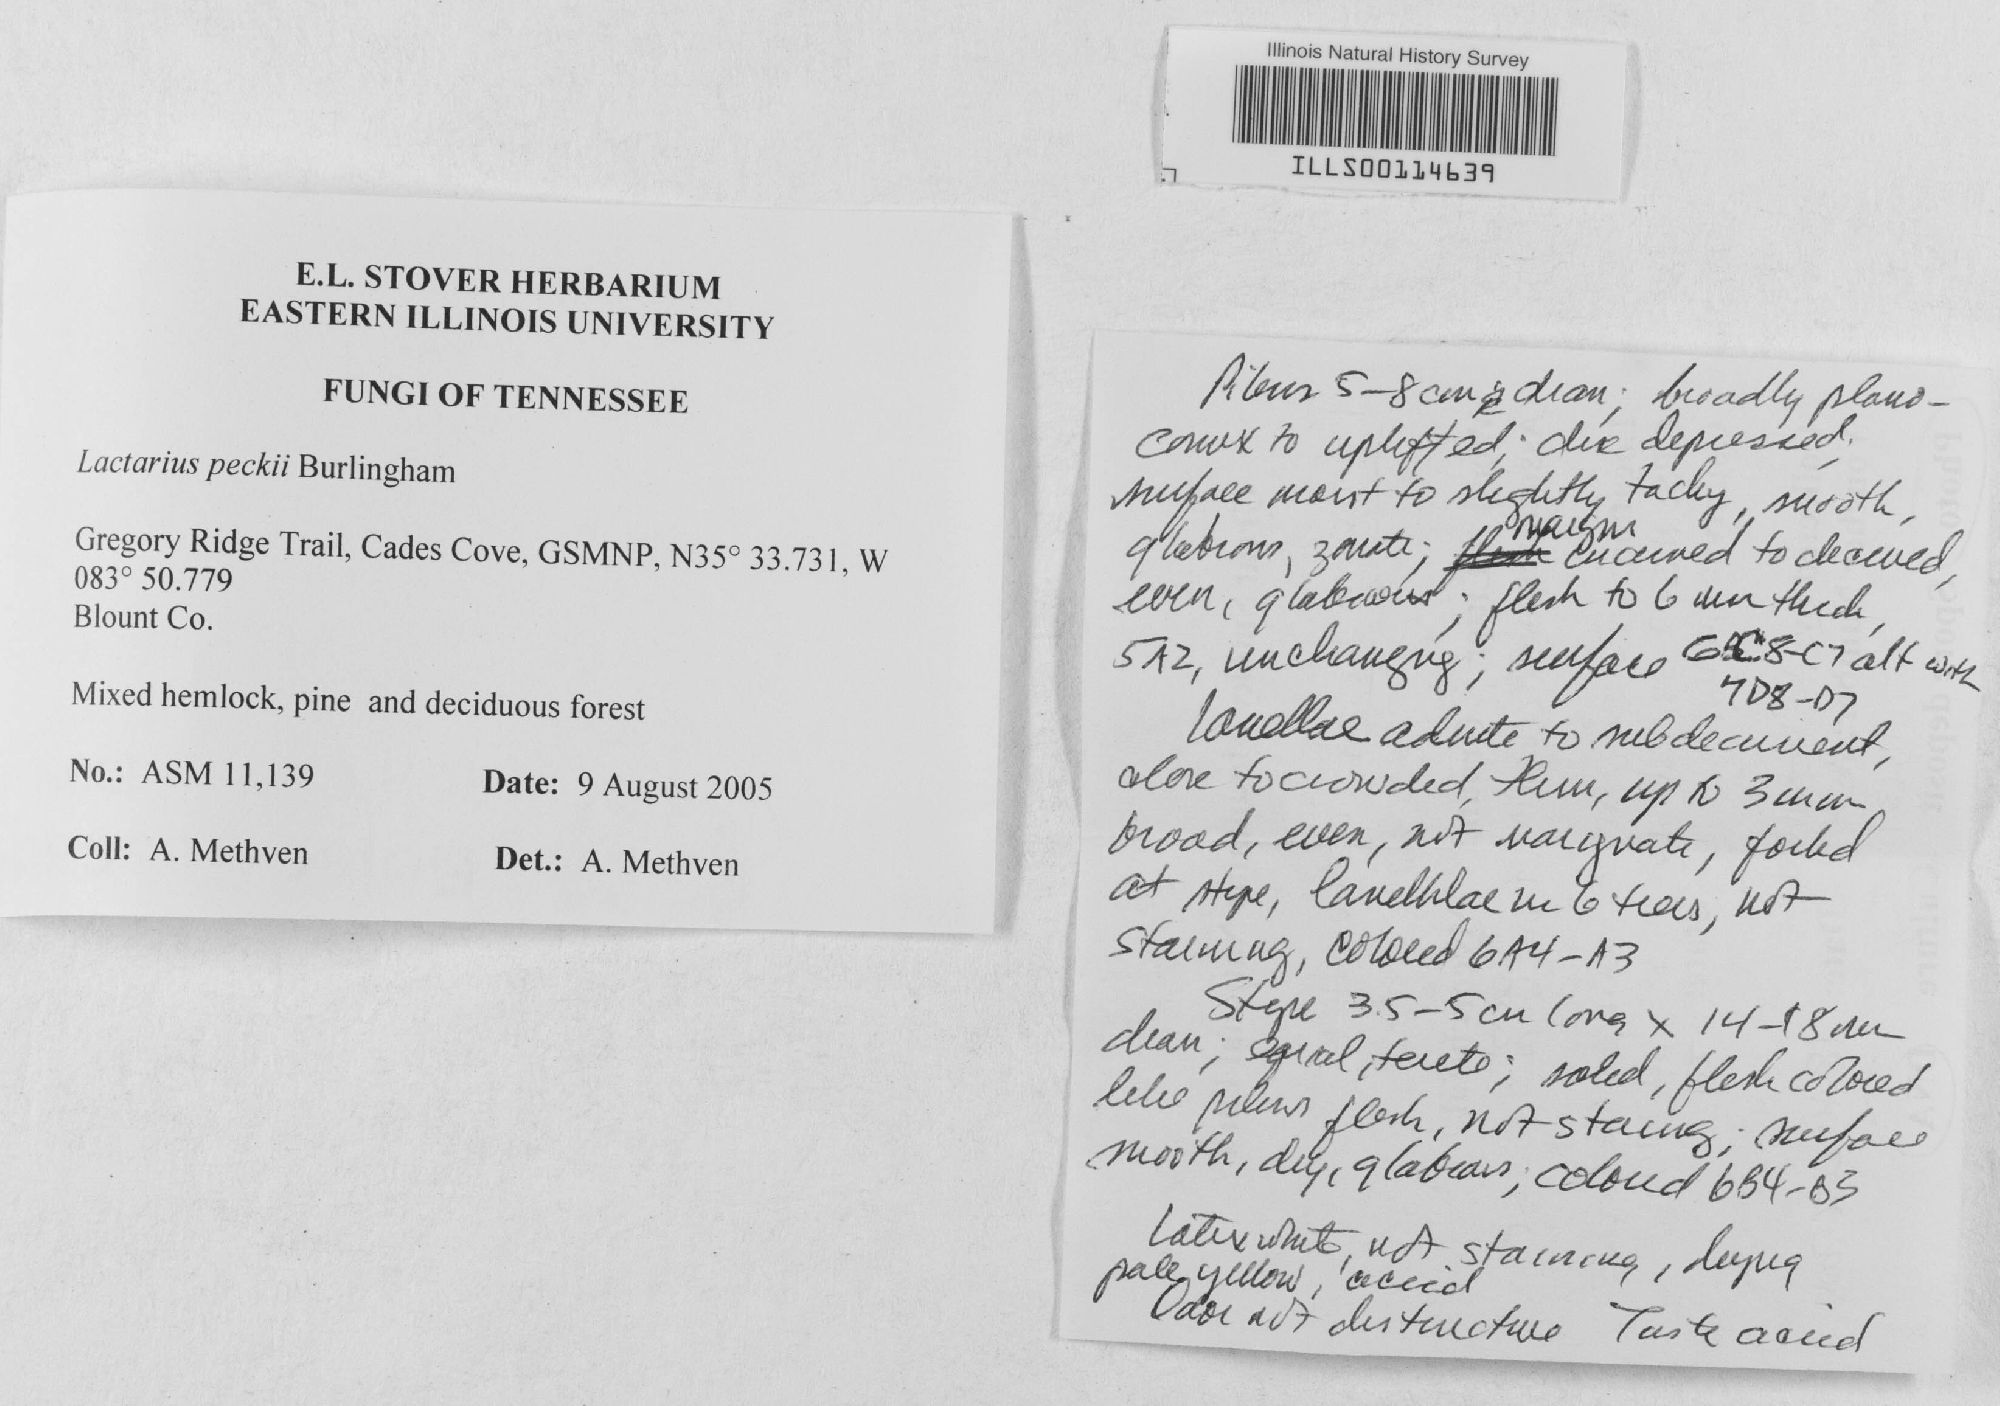 Illinois Natural History Survey
ILLS00114639
E.L. STOVER HERBARIUM
EASTERN ILLINOIS UNIVERSITY
FUNGI OF TENNESSEE
Lactarius peckii Burlingham
Gregory Ridge Trail, Cades Cove, GSMNP, N35° 33.731, W
083° 50.779
Blount Co.
Mixed hemlock, pine and deciduous forest
No.: ASM 11,139 Date: 9 August 2005
Coll: A. Methven Det.: A. Methven
Pileus 5-8 cm diam; broadly plano-
convex to uplifted; disc depressed;
surface moist to slightly tacky, smooth,
glabrous, zonate; margin incurved to decurved,
even, glabrous; flesh to 6 mm thick,
5A2, unchanging; surface 6C8-C7 alt with
7D8-D7
Lamellae adnate to subdecurrent,
close to crowded, thin, up to 3 mm
broad, even, not marginate, forked
at stipe, lamellulae in 6 tiers, not
staining, colored 6A4-A3
Stipe 3.5-5 cm long x 14-18 mm
diam; equal, terete; solid, flesh colored
like pileus flesh, not staining; surface
smooth, dry, glabrous; colored 6B4-B3
Latex white, not staining, drying
pale yellow, acrid
Odor not distinctive Taste acrid